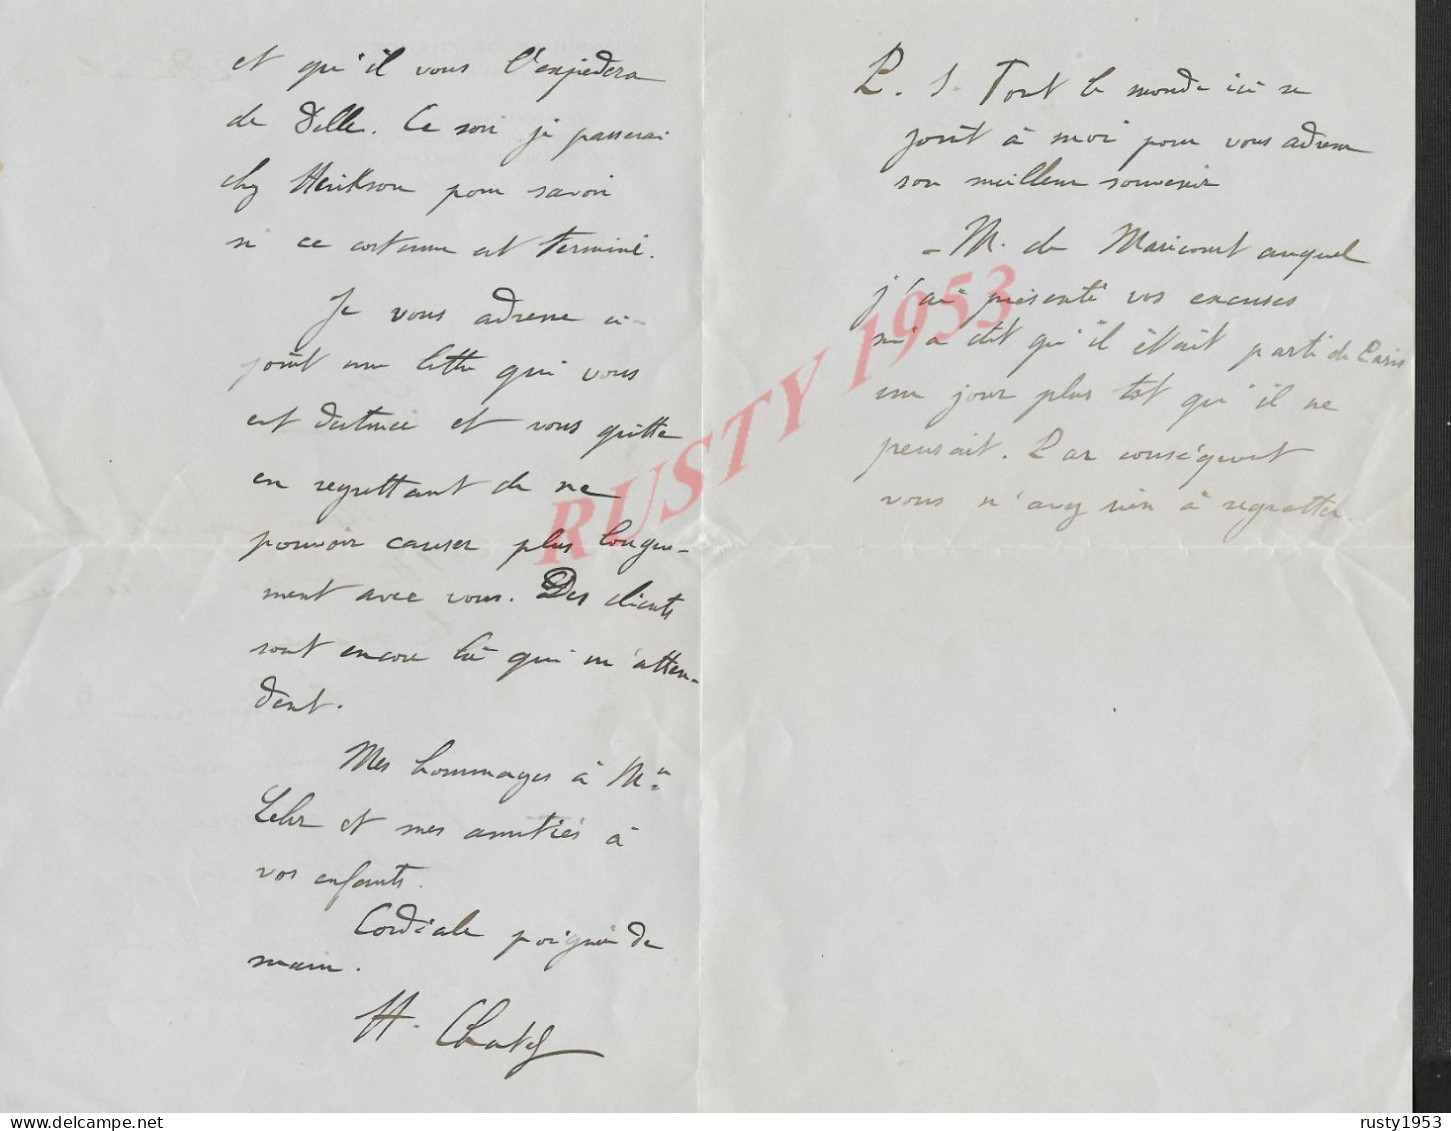 et qu'il vous l'expédiera
de Delle. Ce soir je passerai
chez Henikson pour savoir
si ce costume est terminé.
Je vous adresse ci-
joint une lettre qui vous
est destinée et vous quitte
en regrettant de ne
pouvoir causer plus longue-
ment avec vous. Des clients
sont encore là qui m'atten-
dent.
Mes hommages à Mme
Lehr et mes amitiés à
vos enfants.
Cordiale poignée de
main.
H. Chatel
P. S. Tout le monde ici se
joint à moi pour vous adresser
son meilleur souvenir
- M. de Maricourt auquel
j'ai présenté vos excuses
m'a dit qu'il était parti de Paris
un jour plus tôt qu'il ne
pensait. Par conséquent
vous n'avez rien à regretter
RUSTY 1953
rusty1953